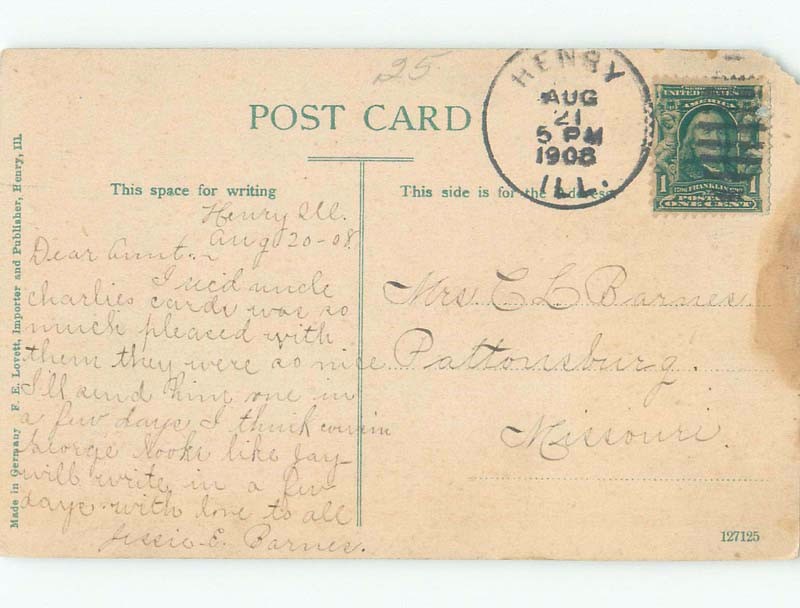 25
HENRY
AUG
21
5 PM
1908
ILL.
UNITED STATES
AMERICA
1 1
FRANKLIN
POSTAGE
ONE CENT
POST CARD
This space for writing
This side is for the address
Henry Ill.
Aug 20-08
Dear Aunt.
I recd uncle
charlies cards was so
much pleased with
them they were so nice
I'll send him one in
a few days I think cousin
George looks like Jay
will write in a few
days with love to all
Jessie E. Barnes.
Mrs. C L Barnes.
Pattonsburg.
Missouri.
127125
Made in Germany F. E. Lovett, Importer and Publisher, Henry, Ill.